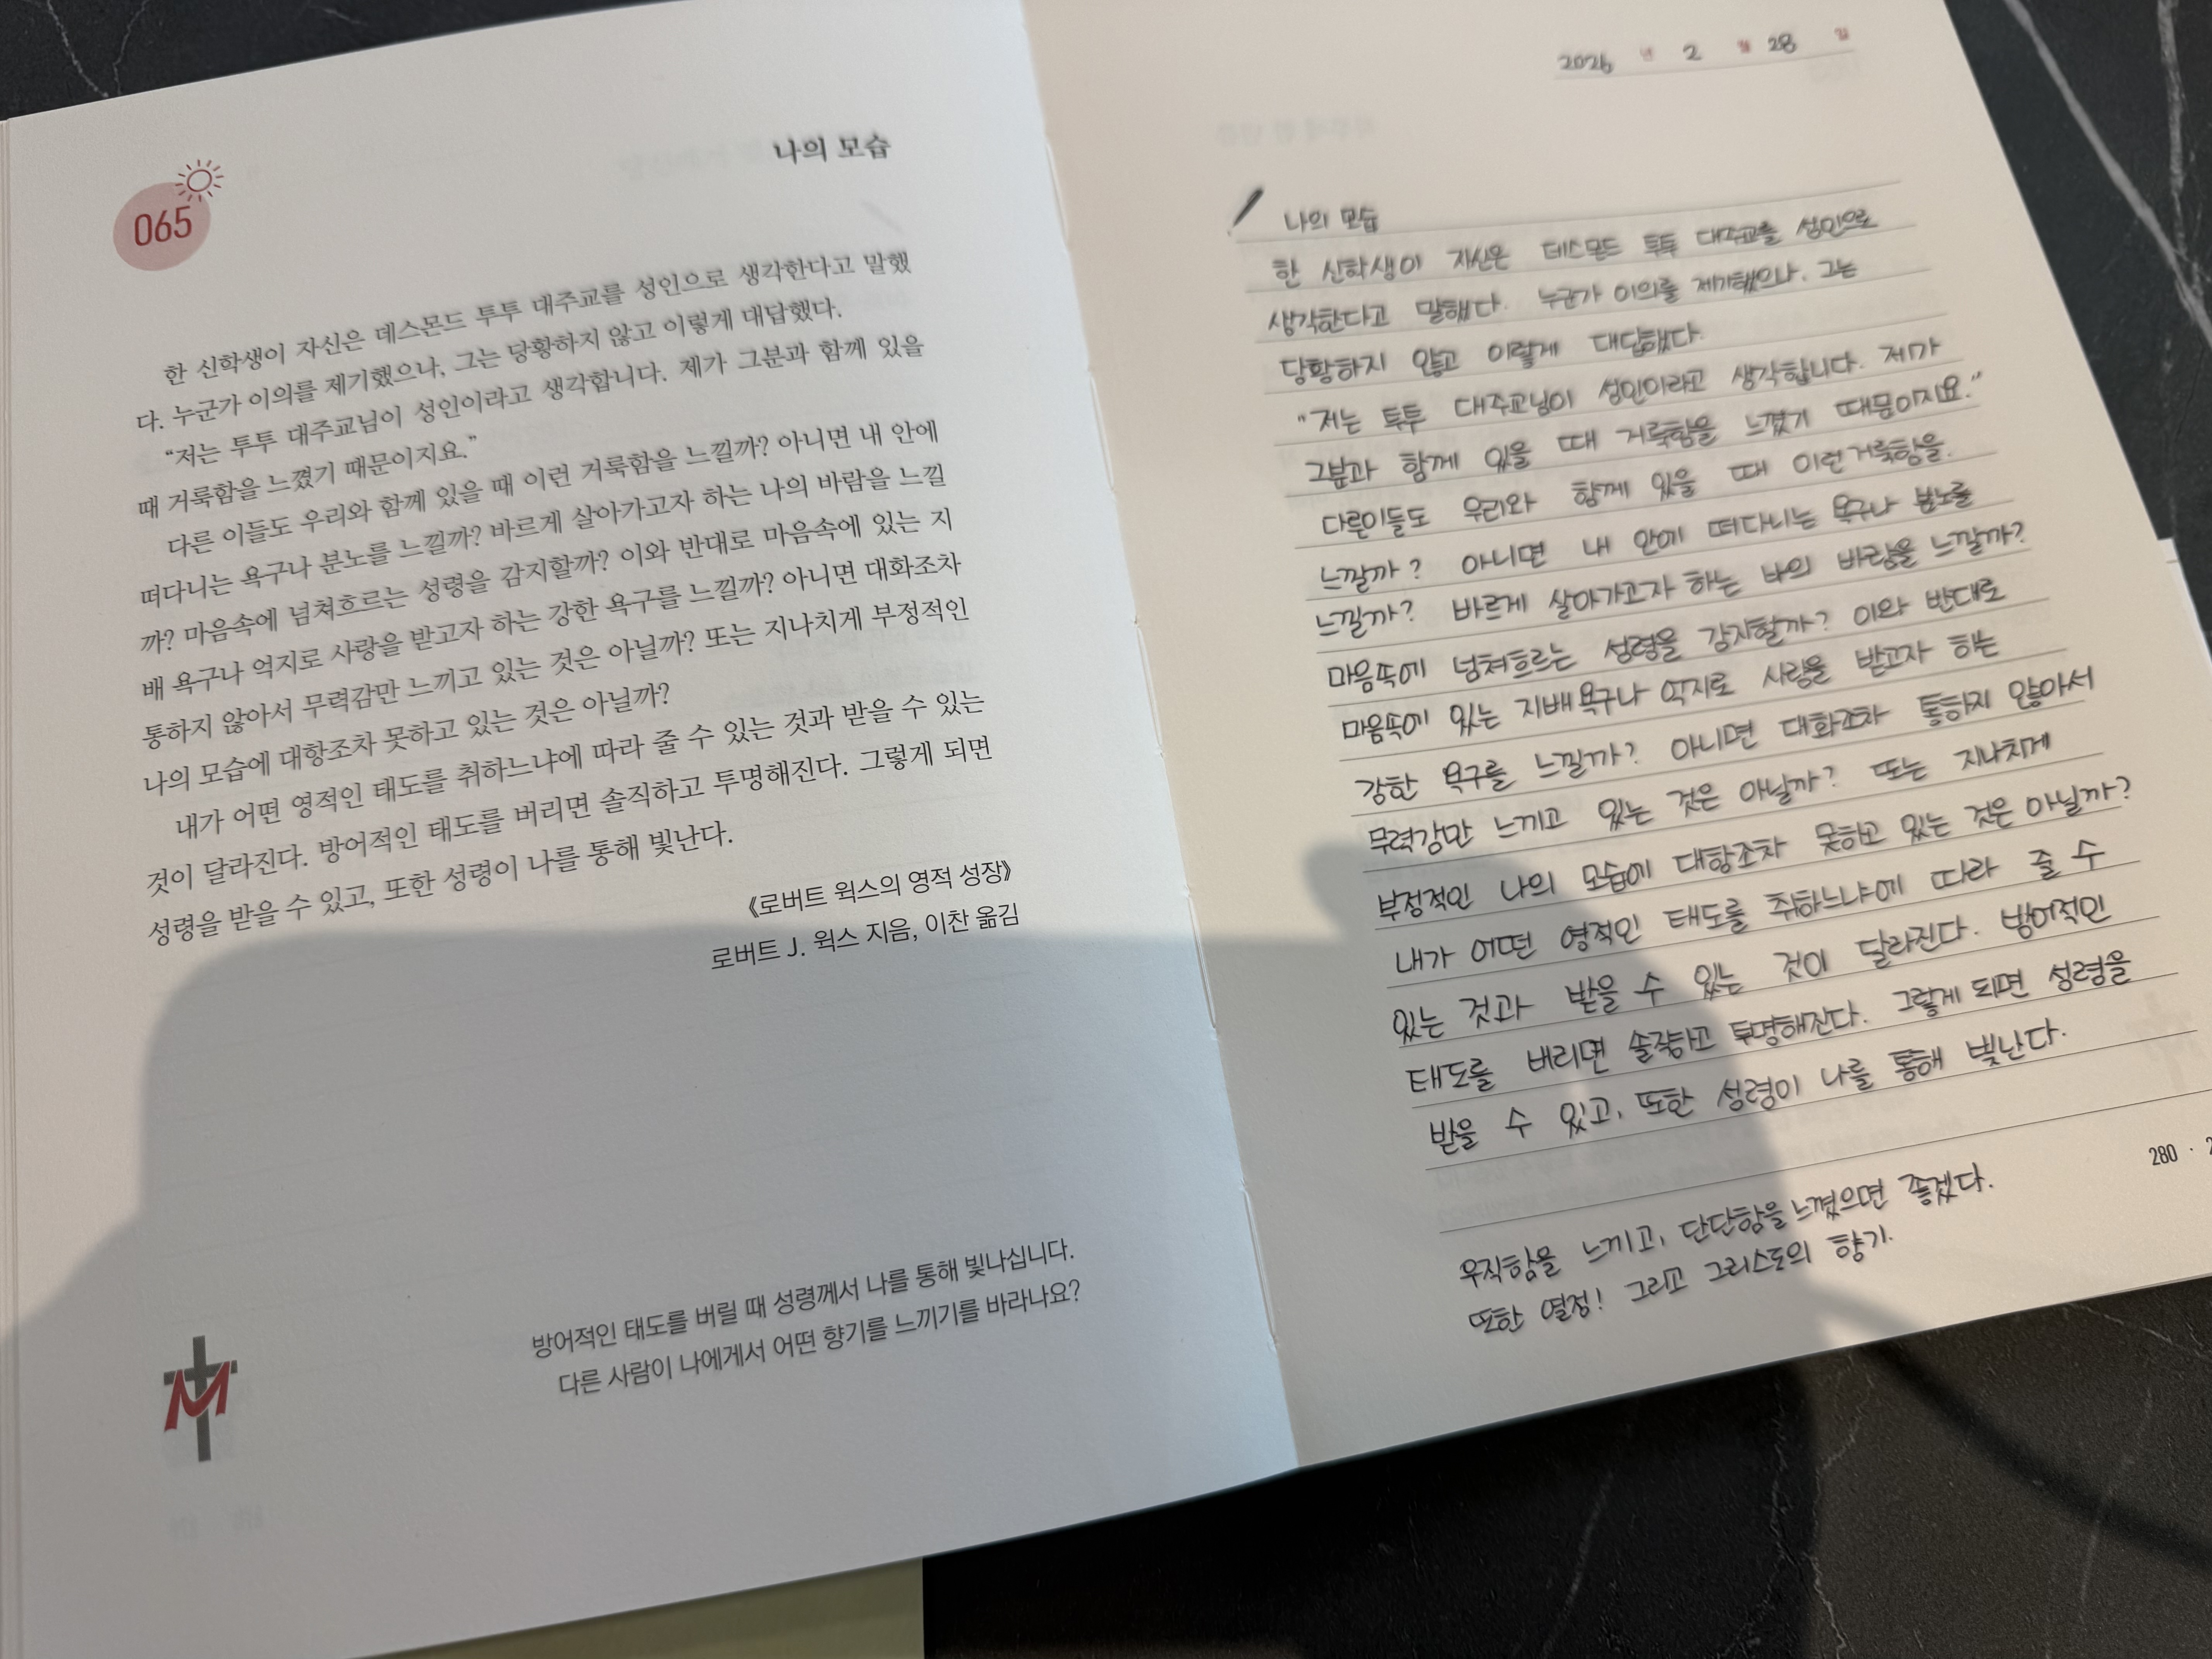 065
나의 모습
한 신학생이 자신은 데스몬드 투투 대주교를 성인으로 생각한다고 말했
다. 누군가 이의를 제기했으나, 그는 당황하지 않고 이렇게 대답했다.
“저는 투투 대주교님이 성인이라고 생각합니다. 제가 그분과 함께 있을
때 거룩함을 느꼈기 때문이지요.”
다른 이들도 우리와 함께 있을 때 이런 거룩함을 느낄까? 아니면 내 안에
떠다니는 욕구나 분노를 느낄까? 바르게 살아가고자 하는 나의 바람을 느낄
까? 마음속에 넘쳐흐르는 성령을 감지할까? 이와 반대로 마음속에 있는 지
배 욕구나 억지로 사랑을 받고자 하는 강한 욕구를 느낄까? 아니면 대화조차
통하지 않아서 무력감만 느끼고 있는 것은 아닐까? 또는 지나치게 부정적인
나의 모습에 대항조차 못하고 있는 것은 아닐까?
내가 어떤 영적인 태도를 취하느냐에 따라 줄 수 있는 것과 받을 수 있는
것이 달라진다. 방어적인 태도를 버리면 솔직하고 투명해진다. 그렇게 되면
성령을 받을 수 있고, 또한 성령이 나를 통해 빛난다.
《로버트 윅스의 영적 성장》
로버트 J. 윅스 지음, 이찬 옮김
방어적인 태도를 버릴 때 성령께서 나를 통해 빛나십니다.
다른 사람이 나에게서 어떤 향기를 느끼기를 바라나요?
M
2026 년 2 월 28 일
나의 모습
한 신학생이 자신은 데스몬드 투투 대주교를 성인으로
생각한다고 말했다. 누군가 이의를 제기했으나, 그는
당황하지 않고 이렇게 대답했다.
"저는 투투 대주교님이 성인이라고 생각합니다. 제가
그분과 함께 있을 때 거룩함을 느꼈기 때문이지요."
다른이들도 우리와 함께 있을 때 이런 거룩함을.
느낄까? 아니면 내 안에 떠다니는 욕구나 분노를
느낄까? 바르게 살아가고자 하는 나의 바람을 느낄까?
마음속에 넘쳐흐르는 성령을 감지할까? 이와 반대로
마음속에 있는 지배 욕구나 억지로 사랑을 받고자 하는
강한 욕구를 느낄까? 아니면 대화조차 통하지 않아서
무력감만 느끼고 있는 것은 아닐까? 또는 지나치게
부정적인 나의 모습에 대항조차 못하고 있는 것은 아닐까?
내가 어떤 영적인 태도를 취하느냐에 따라 줄 수
있는 것과 받을 수 있는 것이 달라진다. 방어적인
태도를 버리면 솔직하고 투명해진다. 그렇게 되면 성령을
받을 수 있고, 또한 성령이 나를 통해 빛난다.
280 ·
우직함을 느끼고, 단단함을 느꼈으면 좋겠다.
또한 열정! 그리고 그리스도의 향기.